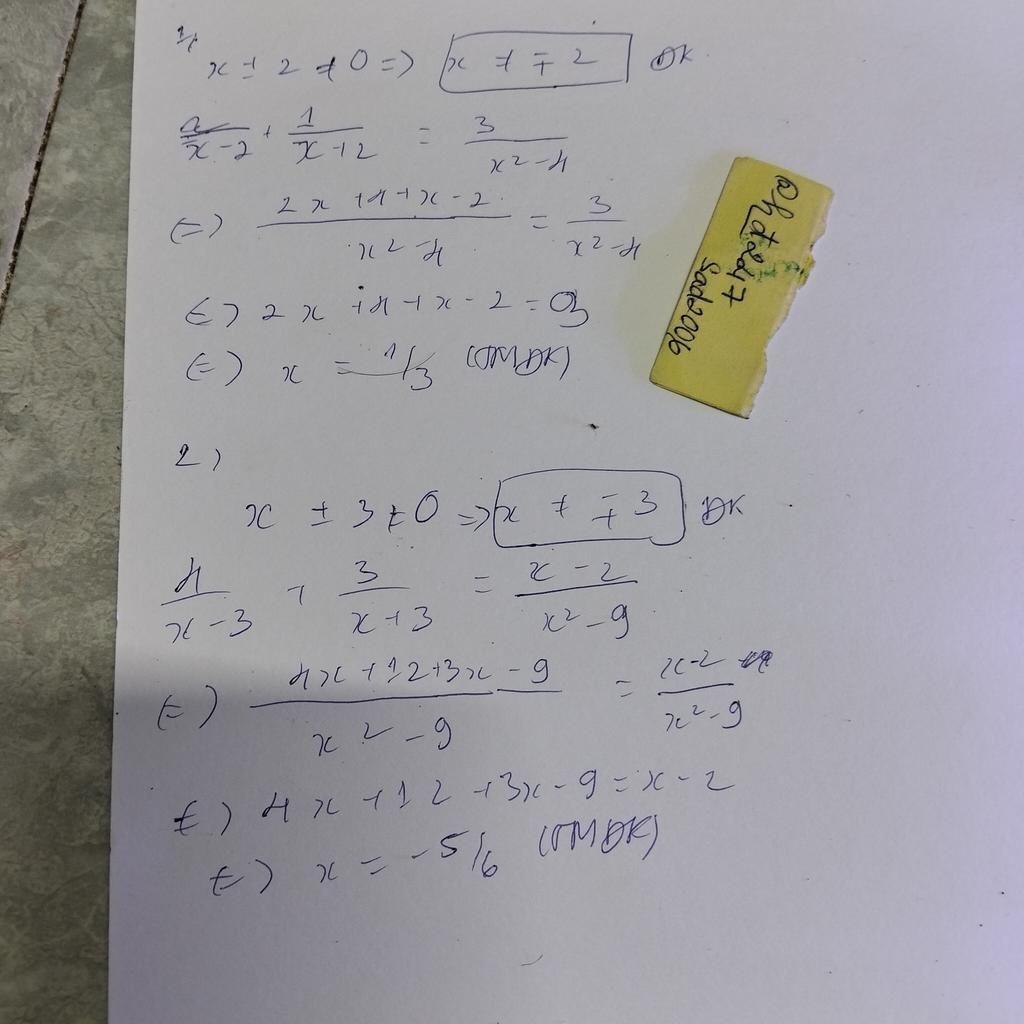 1,
x ± 2 ≠ 0 => x ≠ ∓ 2 ĐK
2/(x-2) + 1/(x+2) = 3/(x²-4)
<=> (2x+4+x-2)/(x²-4) = 3/(x²-4)
<=> 2x+4+x-2=3
<=> x = 1/3 (TMĐK)
2,
x ± 3 ≠ 0 => x ≠ ∓ 3 ĐK
4/(x-3) + 3/(x+3) = (x-2)/(x²-9)
<=> (4x+12+3x-9)/(x²-9) = (x-2)/(x²-9)
<=> 4x+12+3x-9=x-2
<=> x = -5/6 (TMĐK)